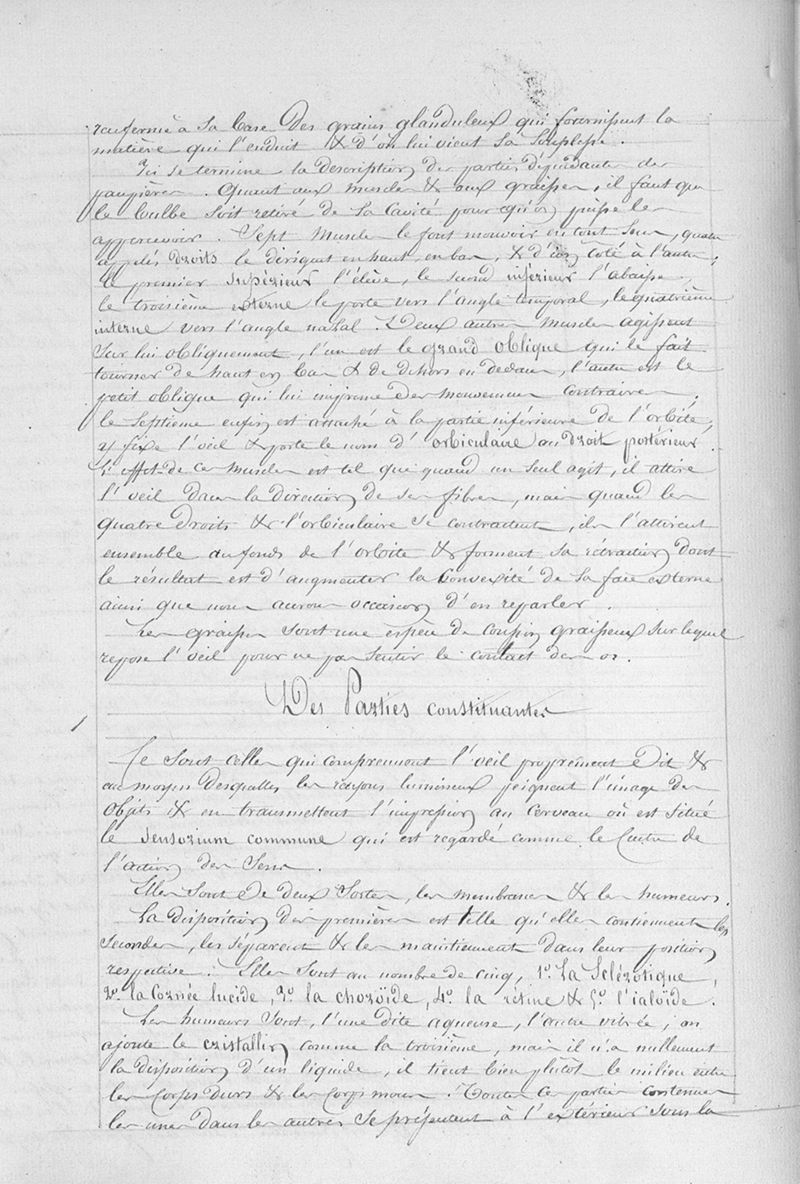 renfermé à sa base des grains glanduleux qui fournissent la
matière qui l'enduit & d'où lui vient sa souplesse.
Ici se termine la description des parties dépendantes des
paupières. Quant aux muscles & aux graisses, il faut que
le bulbe soit retiré de sa cavité pour qu'on puisse les
appercevoir. Sept muscles le font mouvoir en tout sens, quatre
appelés droits le dirigent en haut, en bas, & d'un coté à l'autre;
le premier supérieur l'élève, le second inférieur l'abaisse,
le troisième externe le porte vers l'angle temporal, le quatrième
interne vers l'angle nasal. Deux autres muscles agissent
sur lui obliquement, l'un est le grand oblique qui le fait
tourner de haut en bas & de dehors en dedans, l'autre est le
petit oblique qui lui imprime des mouvemens contraires;
le septième enfin est attaché à la partie inférieure de l'orbite,
y fixe l'oeil & porte le nom d'orbiculaire ou droit postérieur.
L'effet de ces muscles est tel que quand un seul agit, il attire
l'oeil dans la direction de ses fibres, mais quand les
quatre droits & l'orbiculaire se contractent, ils l'attirent
ensemble au fonds de l'orbite & forment sa rétraction dont
le résultat est d'augmenter la convexité de sa face externe
ainsi que nous aurons occasion d'en reparler.
Les graisses sont une espèce de coussin graisseux sur lequel
repose l'oeil pour ne pas sentir le contact des os.
Des Parties constituantes
Ce sont celles qui comprennent l'oeil proprement dit &
au moyen desquelles les rayons lumineux peignent l'image des
objets & en transmettent l'impression au cerveau où est situé
le sensorium commune qui est regardé comme le centre de
l'action des sens.
Elles sont de deux sortes, les membranes & les humeurs.
La disposition des premières est telle qu'elles contiennent les
secondes, les séparent & les maintiennent dans leur position
respective. Elles sont au nombre de cinq, 1º. la Sclérotique,
2º. la Cornée lucide, 3º. la choroïde, 4º. la rétine & 5º. l'ialoïde.
Les humeurs sont, l'une dite aqueuse, l'autre vitrée; on
ajoute le cristallin comme la troisième, mais il n'a nullement
la disposition d'un liquide, il tient bien plutôt le milieu entre
les corps durs & les corps mous. Toutes ces parties contenues
les unes dans les autres se présentent à l'extérieur sous la